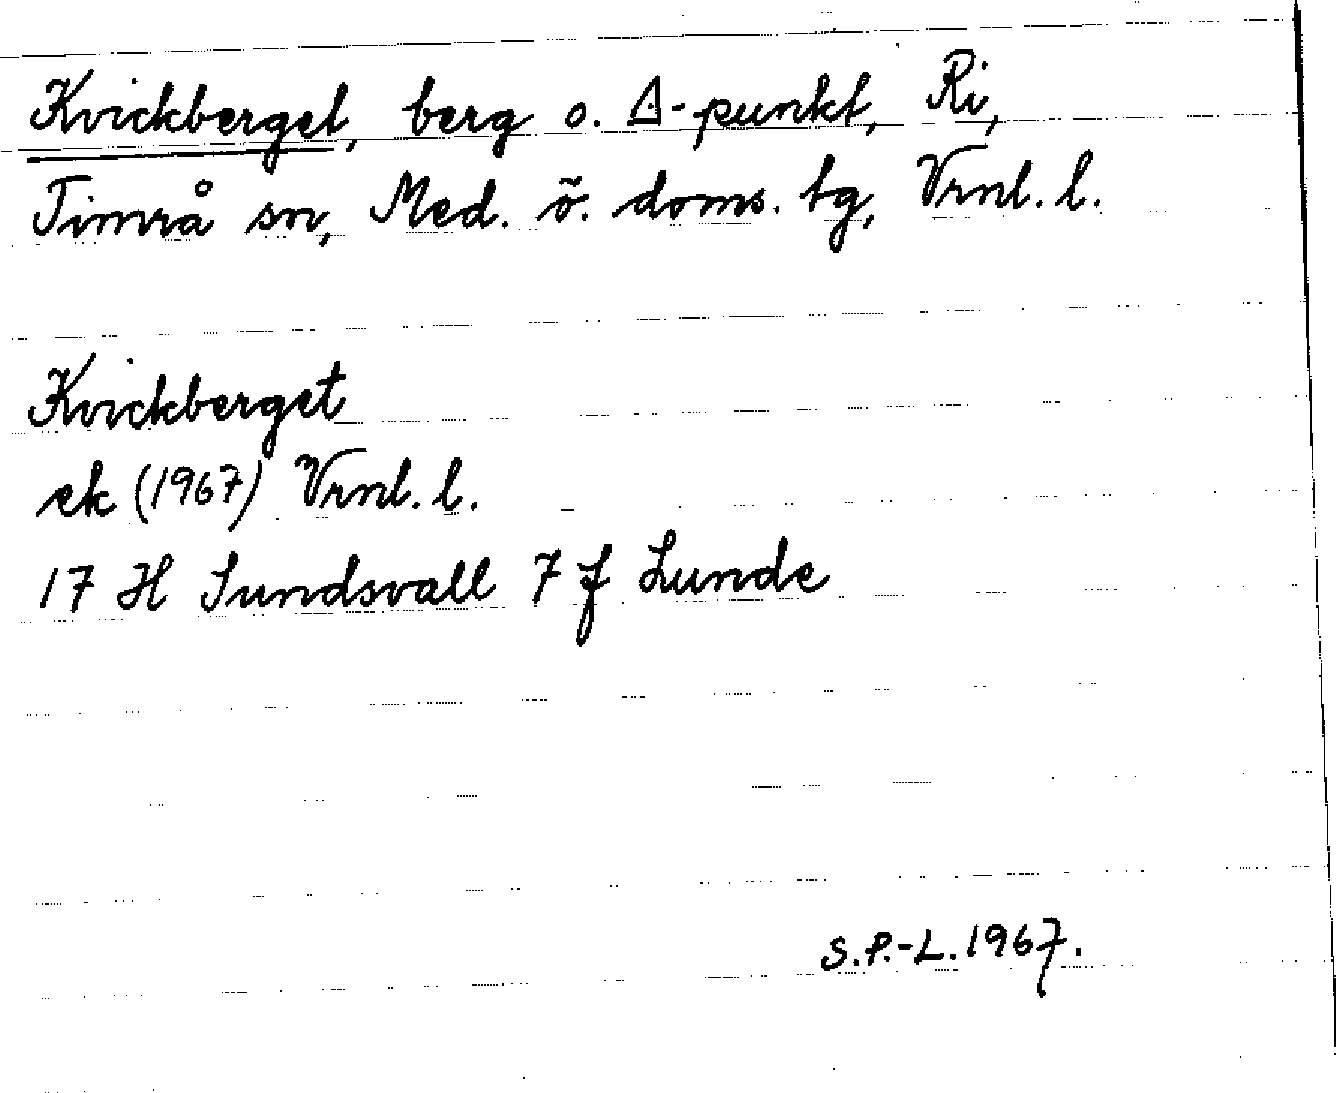 Kvickberget, berg o. Δ-punkt, Ri,
Timrå sn, Med. ö. doms. tg, Vrnl. l.
Kvickberget
ek (1967) Vrnl. l.
17 H Sundsvall 7 f Lunde
S.P.-L. 1967.